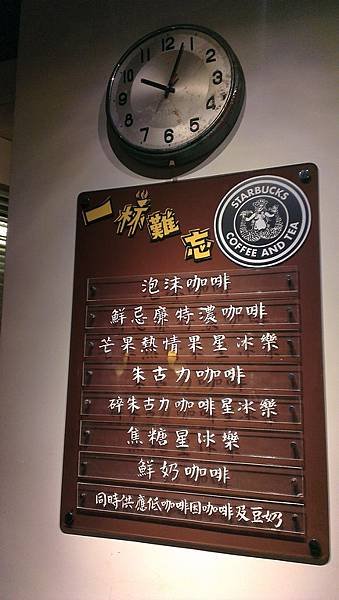 12
1
2
3
4
5
6
7
8
9
10
11
一杯難忘
STARBUCKS
COFFEE AND TEA
泡沫咖啡
鮮忌廉特濃咖啡
芒果熱情果星冰樂
朱古力咖啡
碎朱古力咖啡星冰樂
焦糖星冰樂
鮮奶咖啡
同時供應低咖啡因咖啡及豆奶